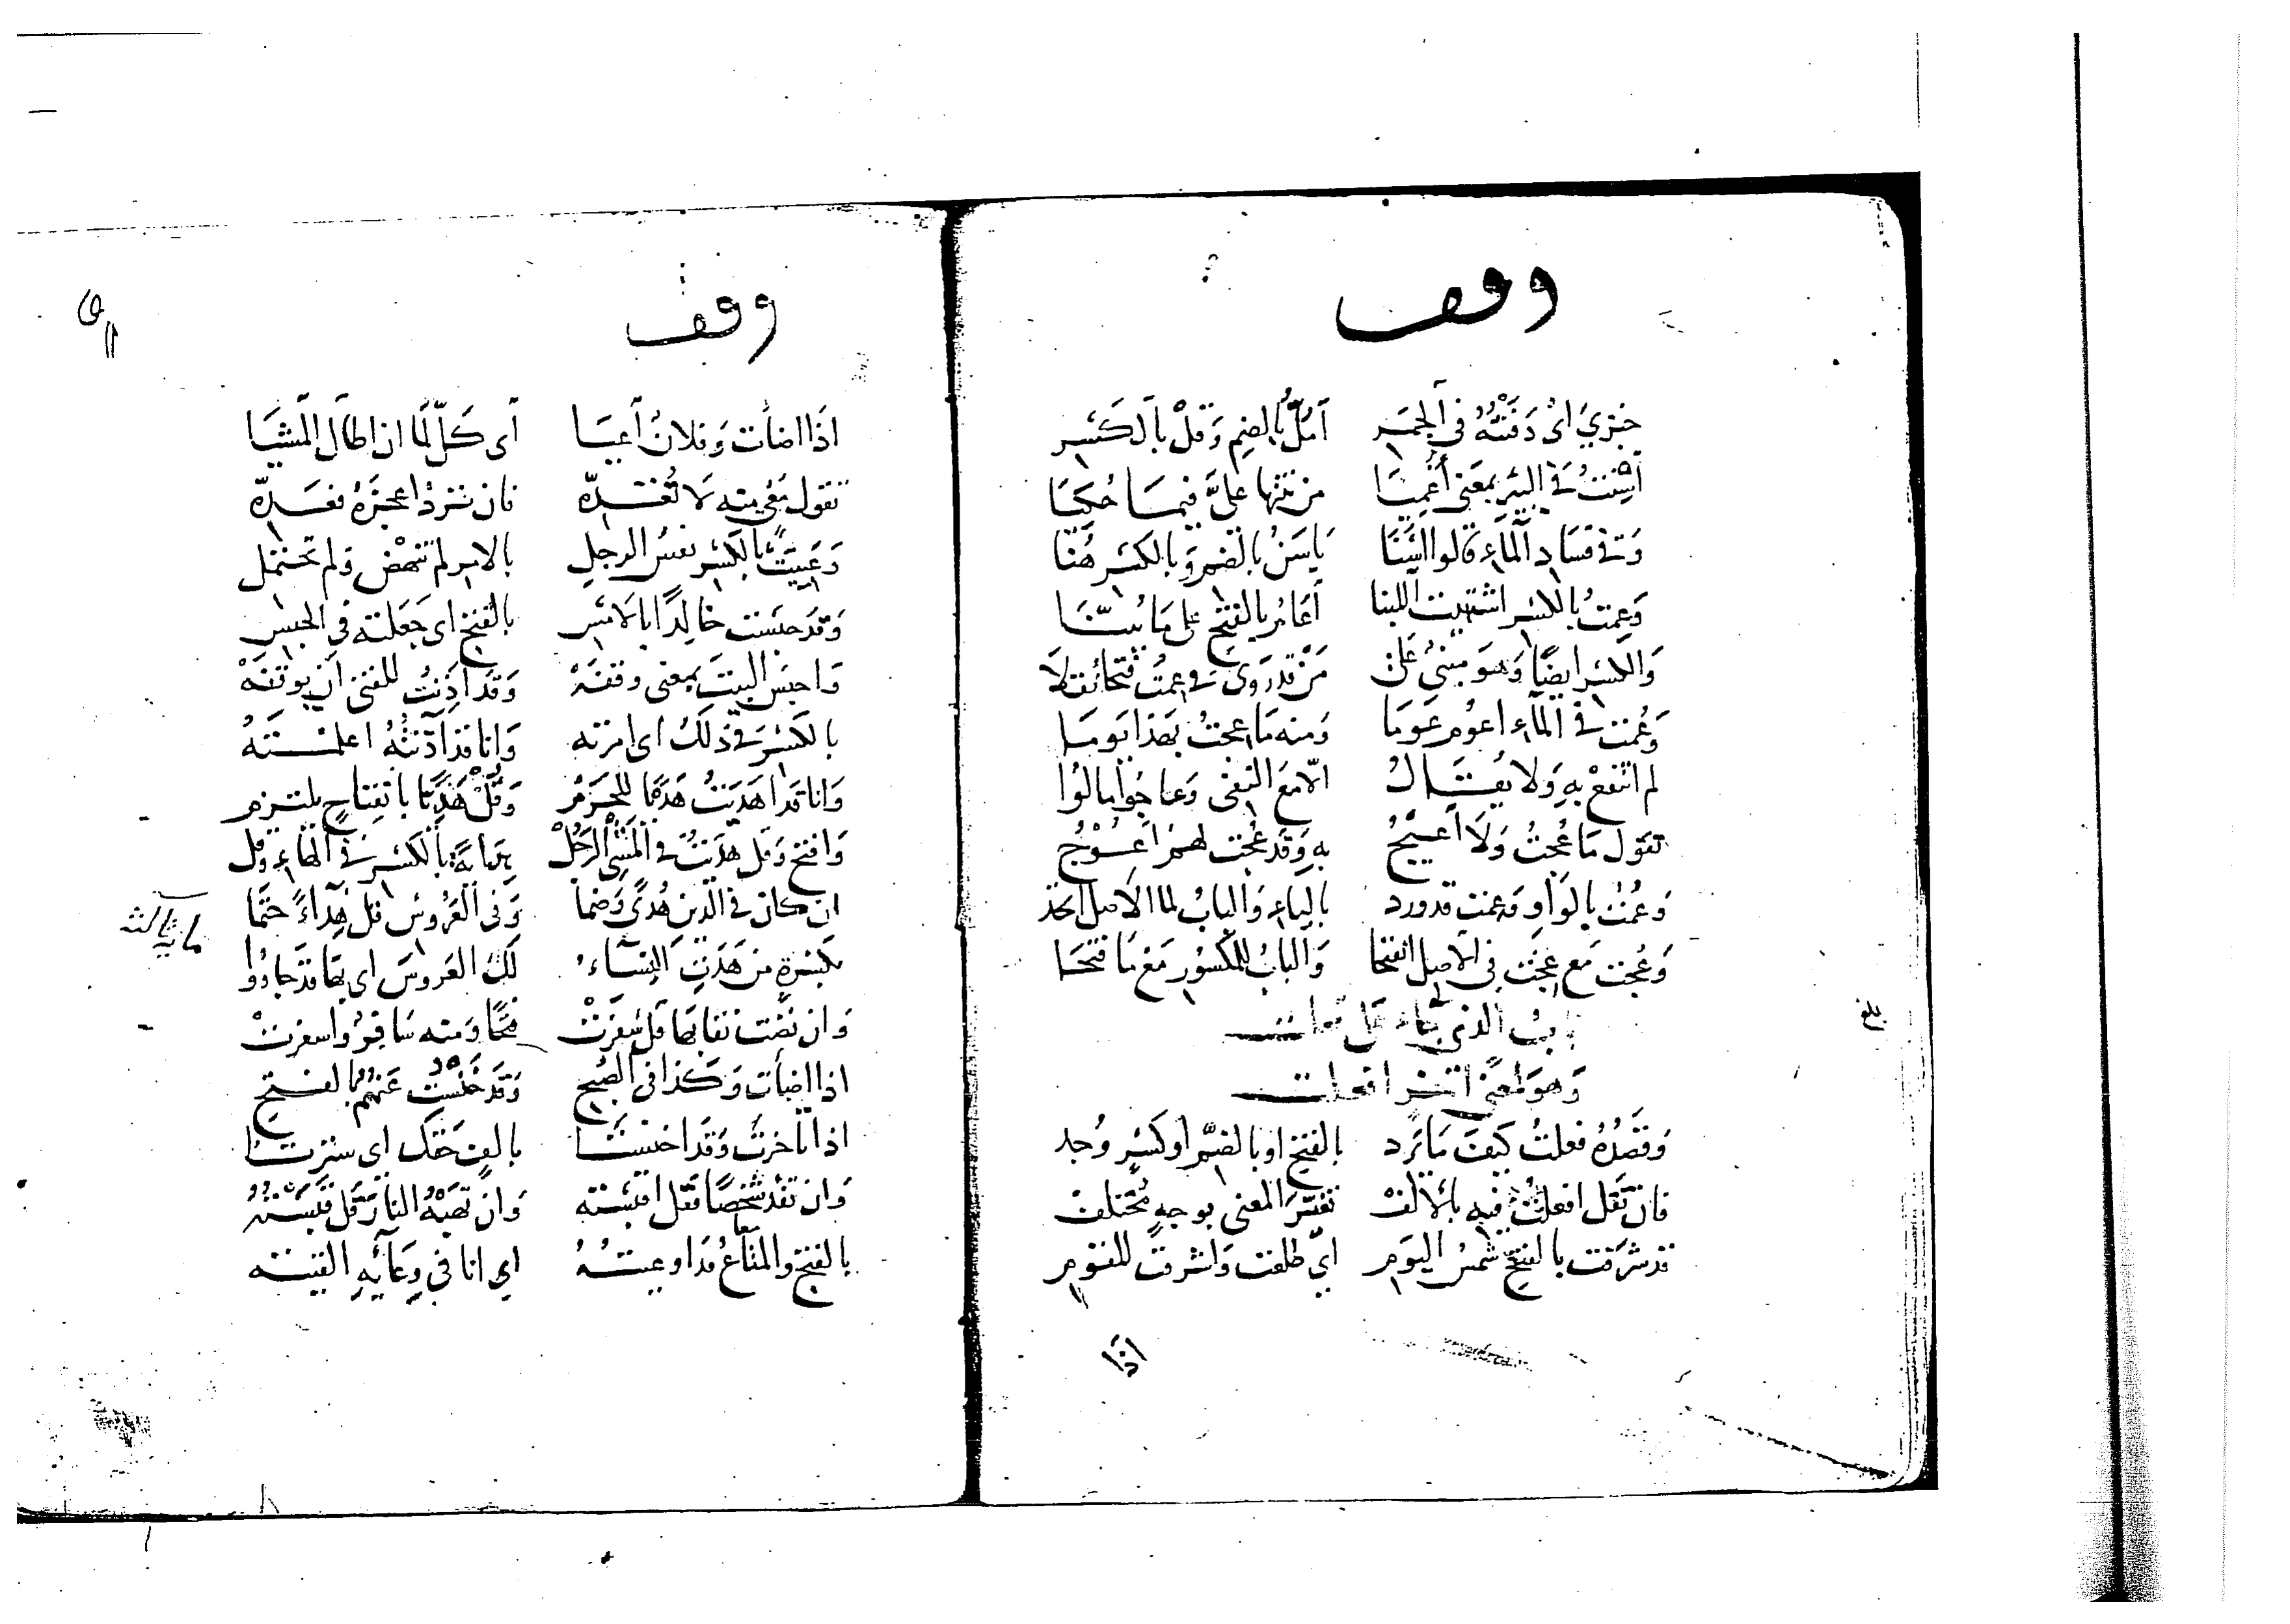 وقف
خبزي اى دفنته في الجمر امل بالضم وقل بالكسر
اسنت في البئر بمعنى اغميا من نتنها على فيما حكيا
وفي فساد الماء قالوا اسنا ياسن بالضم وبالكسر هنا
وعمت بالكسر اشتهيت اللبنا اعام بالفتح على ما بينا
والكسر ايضا وهو مبني على من قد روى في عمت فتحا نقلا
وعمت في الماء اعوم عوما ومنه ما عجت بهذا يوما
لم انتفع به ولا يقال الا مع النفى وعاجوا مالوا
تقول ما عجت ولا اعيج به وقد عجت لهم اعوج
وعمت بالواو وعمت قد ورد بالياء والباب لما الاصل اتخذ
وعجت مع عجت في الاصل انفتحا والباب للمكسور مع ما فتحا
باب الذي جاء على فعلت
وهو لمعنى اخر افعلت
وقصده فعلت كيف ما يرد بالفتح او بالضم او كسر وجد
فان تقل افعلت فيه بالالف تفسر المعنى بوجه مختلف
قد شرقت بالفتح شمس اليوم اي طلعت واشرقت للقوم
اذا
بلغ
وقف
اذا اضات وفلان اعيا اى كل لما ان اطال المشيا
تقول معى منه لا تعده فان ترد اعجزه فعده
وعييت بالكسر نفس الرجل بالامر لم تنهض ولم تحتمل
وقد حبست خالدا بالامس بالفتح اى جعلته في الحبس
واحبس البيت بمعنى وقفه وقد اذنت للفتى ان يوقفه
بالكسر في ذلك اى امرته وانا قد اذنته اعلمته
وانا قد اهديت هديا للحرم وقل هديا بانفتاح يلتزم
وافتح وقل هديت في المشى الرجل هداية بالكسر في الهاء وقل
ان كان في الدين هدى وضما وفى العروس قل هداء حتما
بكسرة من هدت النساء لك العروس اى بها قد جاؤوا
وان نضت نقابها قل سفرت فتحا ومنه سافر واسفرت
اذا اضات وكذا في الصبح وقد خنست عنهم بالفتح
اذا تاخرت وقد اخنستا بالف حقك اى سترتا
وان تفد شخصا فقل اقبسته وان تهبه النار قل قبسته
بالفتح والمتاع قد اوعيته اي انا في وعائه القيته